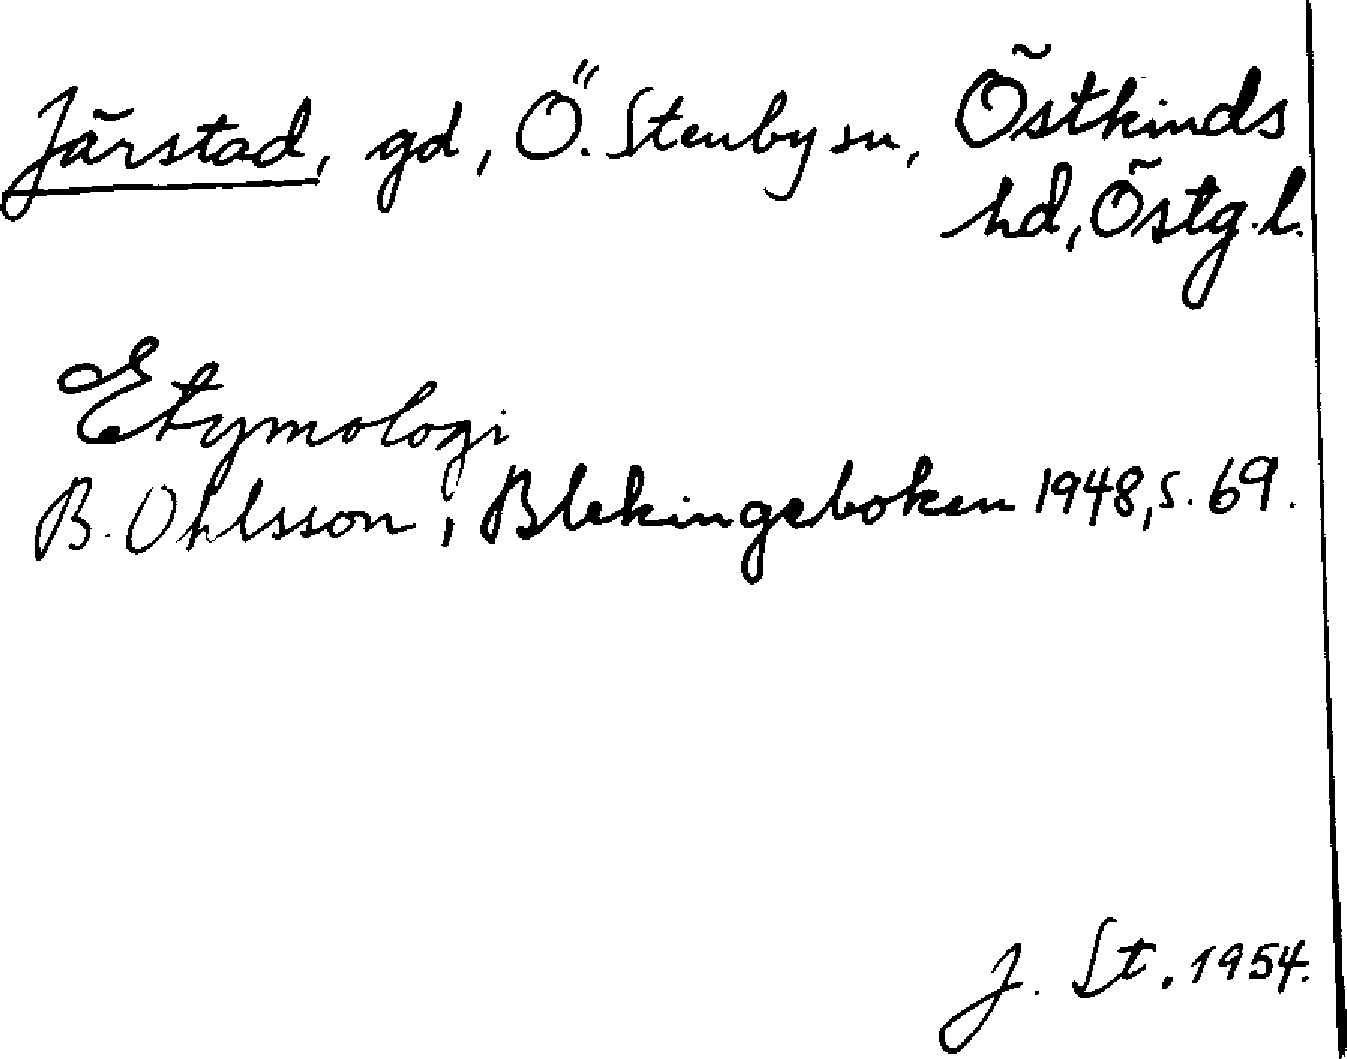 Järstad, gd, Ö. Stenby sn, Östkinds
hd, Östg.l.
Etymologi
B. Ohlsson, Blekingeboken 1948, s. 69.
J. St. 1954.